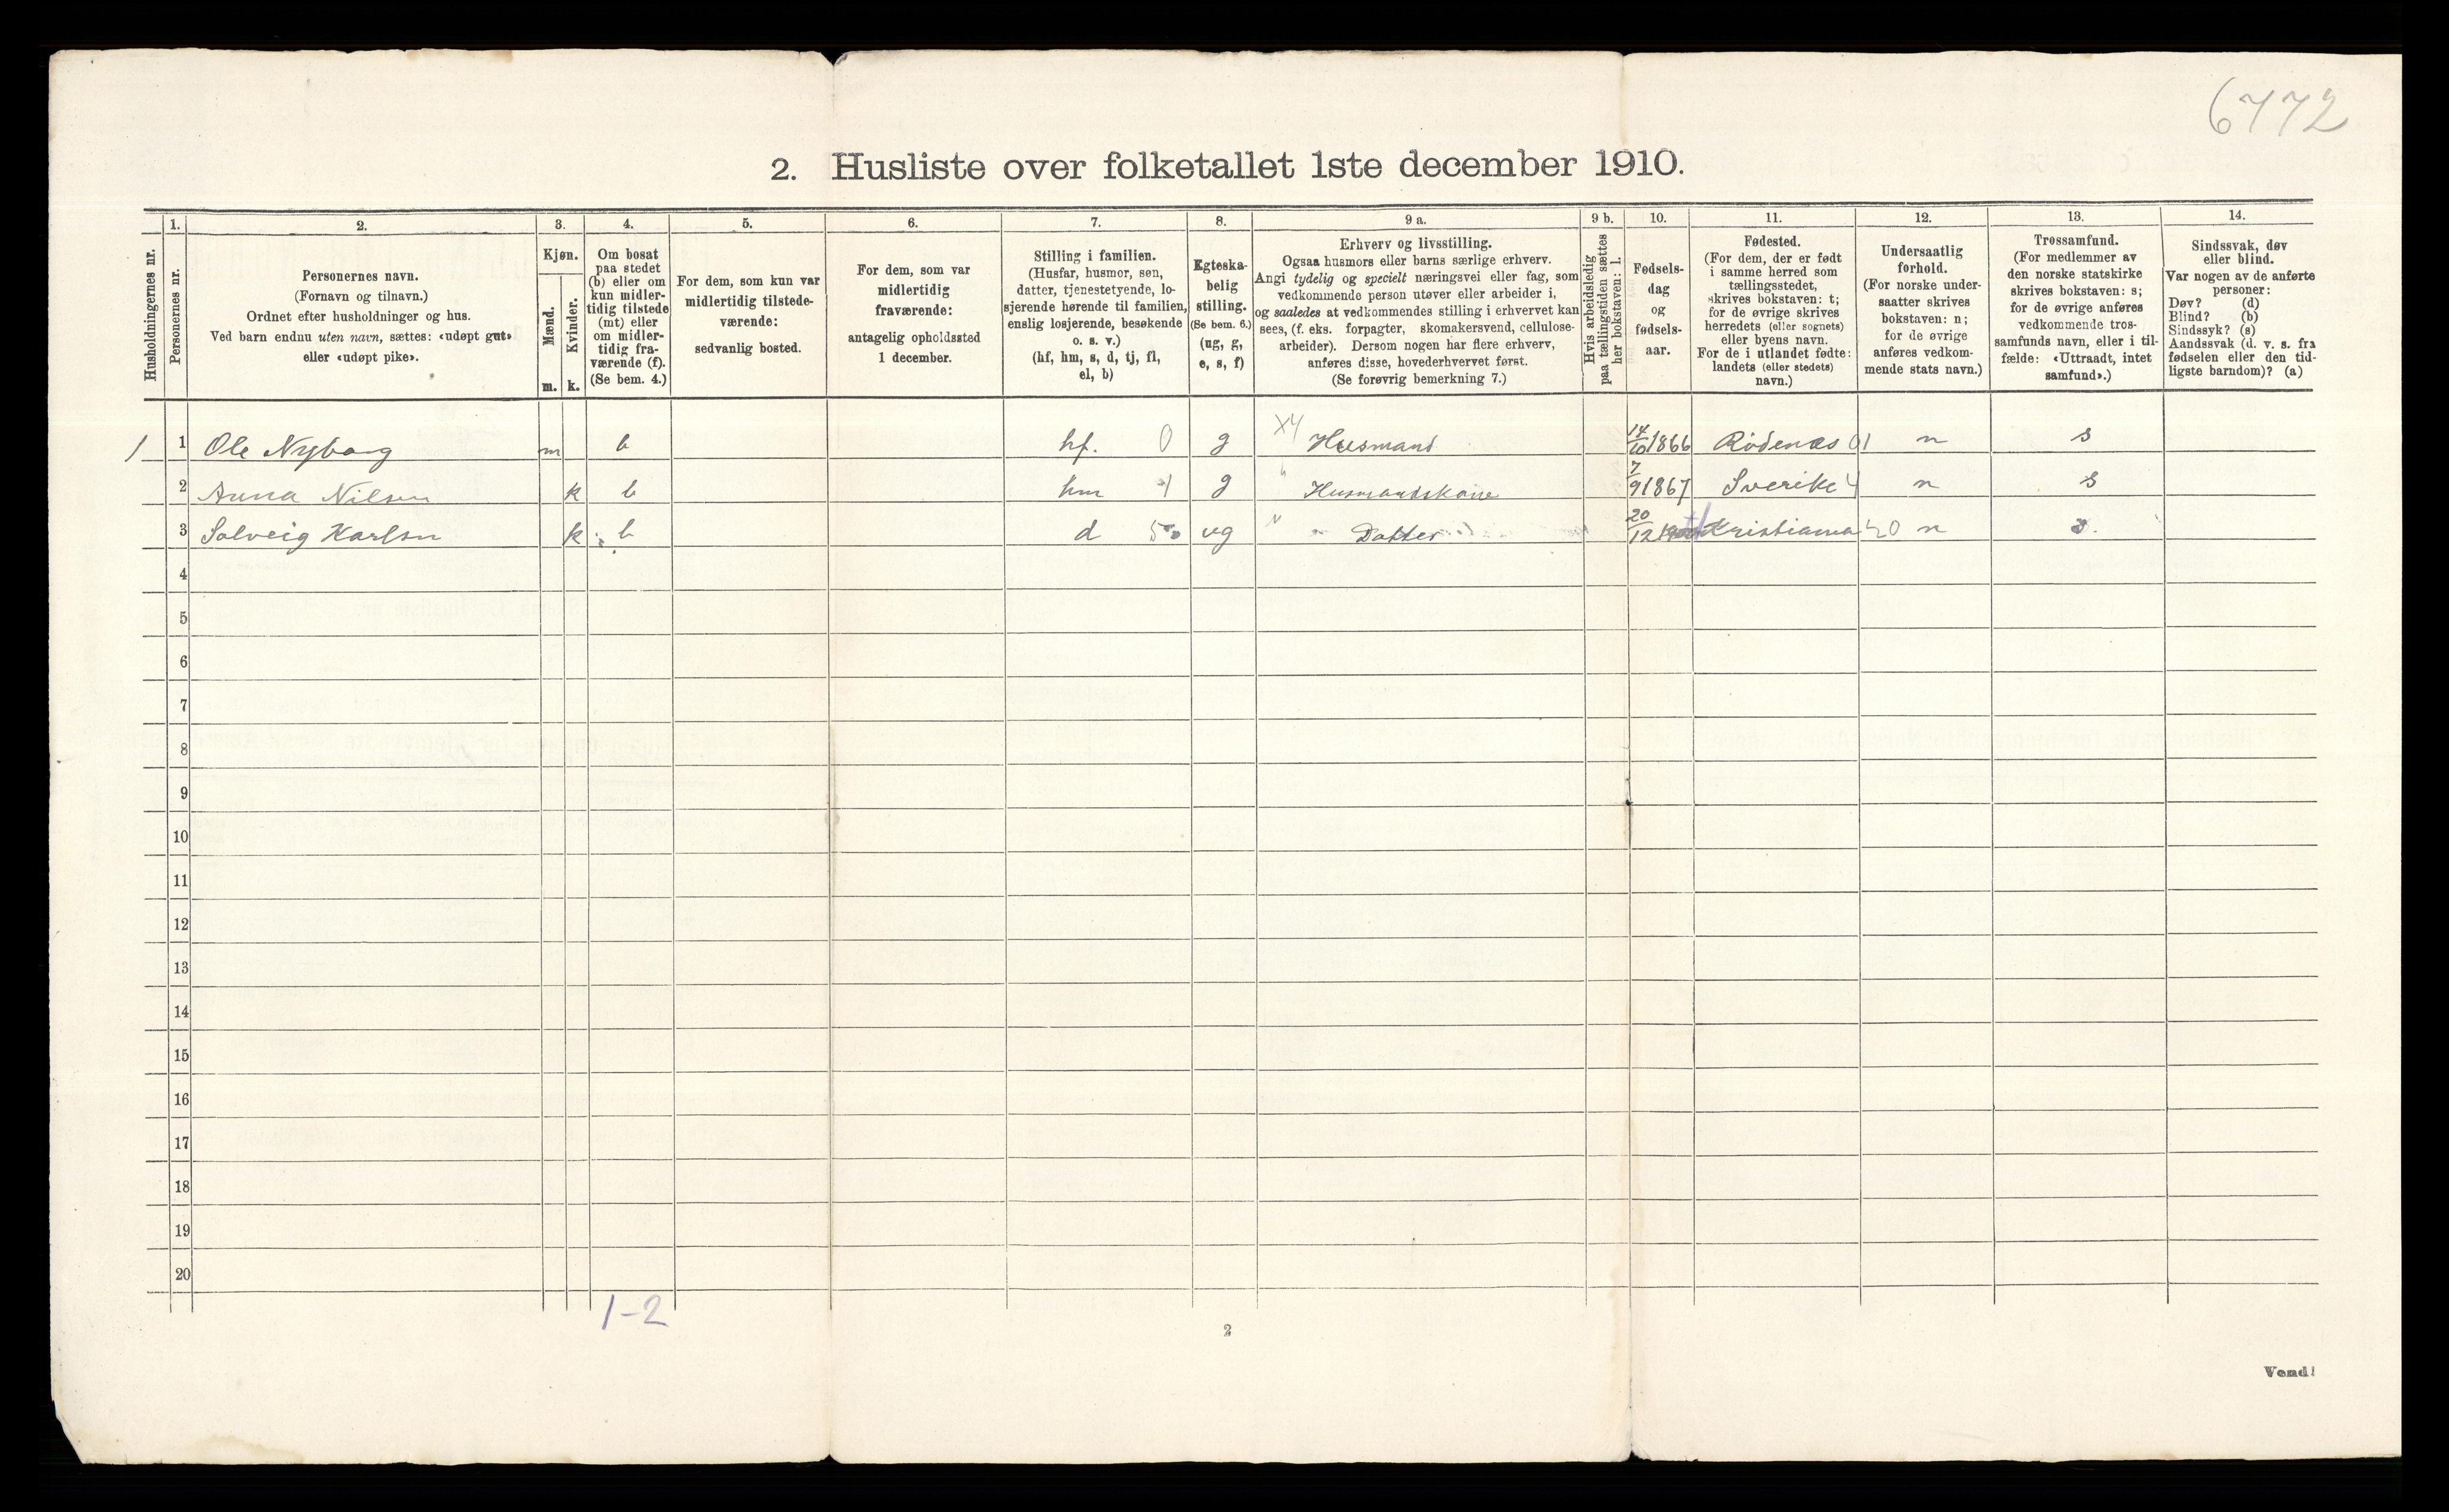 6772
2. Husliste over folketallet 1ste december 1910.
Husholdningernes nr.
1.
Personernes nr.
2.
Personernes navn.
(Fornavn og tilnavn.)
Ordnet efter husholdninger og hus.
Ved barn endnu uten navn, sættes: «udøpt gut»
eller «udøpt pike».
3.
Kjøn.
Mænd.
m.
Kvinder.
k.
4.
Om bosat
paa stedet
(b) eller om
kun midler-
tidig tilstede
(mt) eller
om midler-
tidig fra-
værende (f).
(Se bem. 4.)
5.
For dem, som kun var
midlertidig tilstede-
værende:
sedvanlig bosted.
6.
For dem, som var
midlertidig
fraværende:
antagelig opholdssted
1 december.
7.
Stilling i familien.
(Husfar, husmor, søn,
datter, tjenestetyende, lo-
sjerende hørende til familien,
enslig losjerende, besøkende
o. s. v.)
(hf, hm, s, d, tj, fl,
el, b)
8.
Egteska-
belig
stilling.
(Se bem. 6.)
(ug, g,
e, s, f)
9 a.
Erhverv og livsstilling.
Ogsaa husmors eller barns særlige erhverv.
Angi tydelig og specielt næringsvei eller fag, som
vedkommende person utøver eller arbeider i,
og saaledes at vedkommendes stilling i erhvervet kan
sees, (f. eks. forpagter, skomakersvend, cellulose-
arbeider). Dersom nogen har flere erhverv,
anføres disse, hovederhvervet først.
(Se forøvrig bemerkning 7.)
9 b.
Hvis arbeidsledig
paa tællingstiden sættes
her bokstaven: l.
10.
Fødsels-
dag
og
fødsels-
aar.
11.
Fødested.
(For dem, der er født
i samme herred som
tællingsstedet,
skrives bokstaven: t;
for de øvrige skrives
herredets (eller sognets)
eller byens navn.
For de i utlandet fødte:
landets (eller stedets)
navn.)
12.
Undersaatlig
forhold.
(For norske under-
saatter skrives
bokstaven: n;
for de øvrige
anføres vedkom-
mende stats navn.)
13.
Trossamfund.
(For medlemmer av
den norske statskirke
skrives bokstaven: s;
for de øvrige anføres
vedkommende tros-
samfunds navn, eller i til-
fælde: «Uttraadt, intet
samfund».)
14.
Sindssvak, døv
eller blind.
Var nogen av de anførte
personer:
Døv? (d)
Blind? (b)
Sindssyk? (s)
Aandssvak (d. v. s. fra
fødselen eller den tid-
ligste barndom)? (a)
1 1 Ole Nyborg m b hf. 0 g X4 Husmand 14/10 1866 Rødenæs 01 n s
2 Anna Nilsen k b hm 1 g " Husmandskone 7/9 1867 Sverike 4 n s
3 Solveig Karlsen k b d ug " Datter 20/12 Kristiania 20 n s.
4
5
6
7
8
9
10
11
12
13
14
15
16
17
18
19
20
1-2
2
Vend!